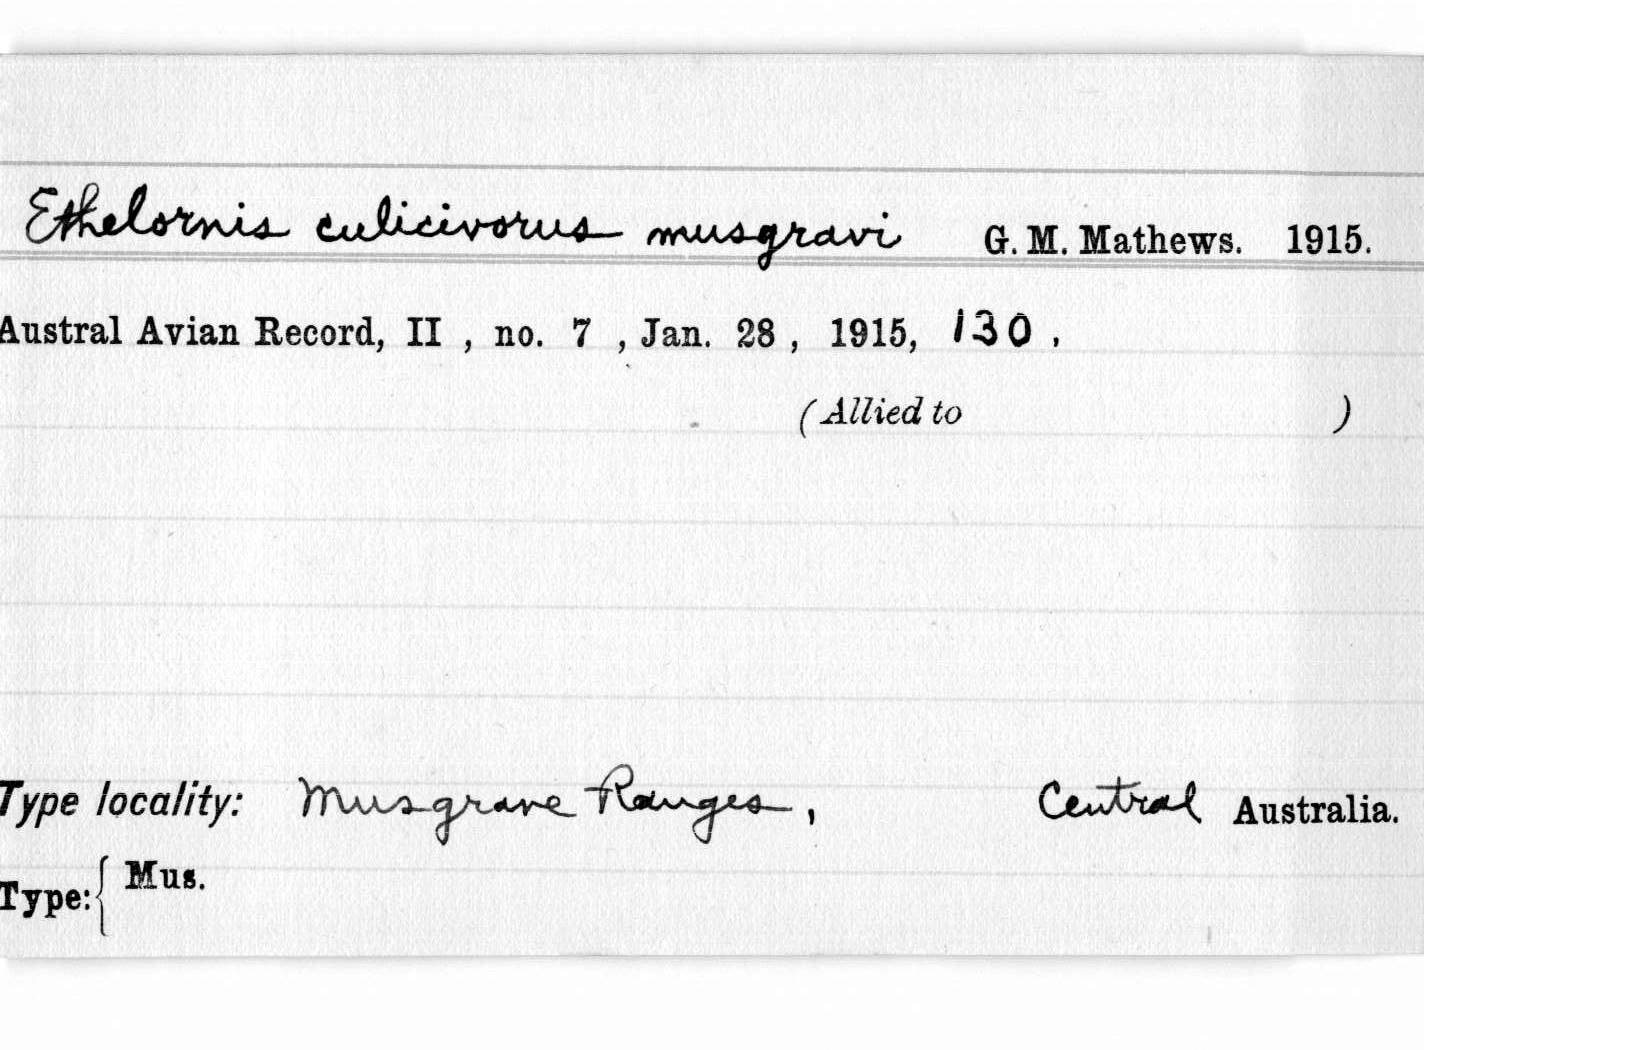 Ethelornis culicivorus musgravi G. M. Mathews. 1915.
Austral Avian Record, II , no. 7 , Jan. 28 , 1915, 130 .
(Allied to )
Type locality: Musgrave Ranges, Central Australia.
Type: { Mus.